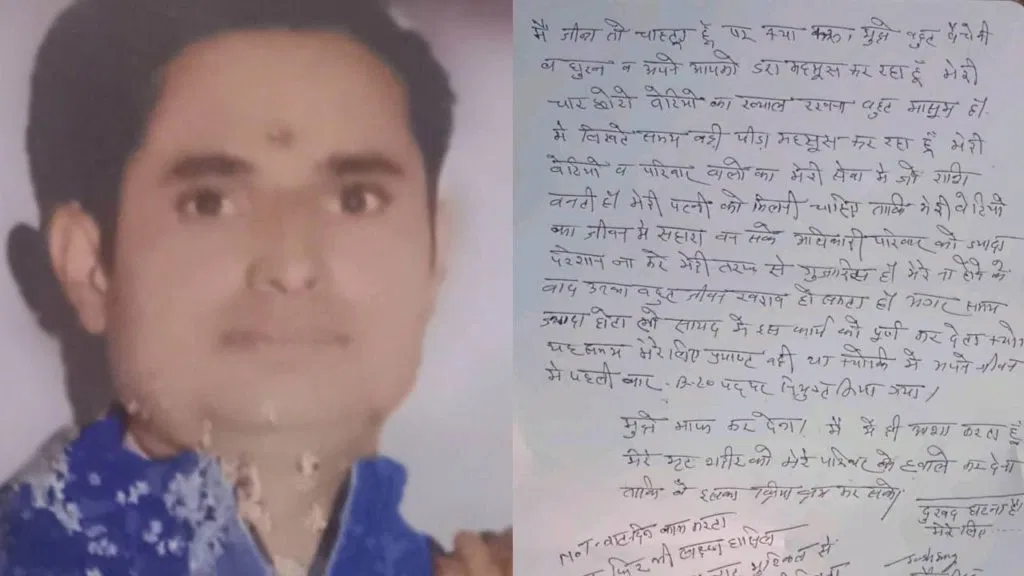 मै जीना तो चाहता हूँ पर क्या करू। मुझे बहुत बैचेनी
व घुटन व अपने आपको डरा महसूस कर रहा हूँ मेरी
चार छोटी बेटियो का ख्याल रखना बहुत मासूम है।
मे लिखते समय बड़ी पीड़ा महसूस कर रहा हूँ मेरी
बेटियो व परिवार वालो का मेरी सेवा मे जो राशि
बनती है। मेरी पत्नी को मिलनी चाहिए ताकि मेरी बेटियो
का जीवन मे सहारा बन सके अधिकारी परिवार को ज्यादा
परेशान ना करे मेरी तरफ से गुजारिस है। मेरे ना होने के
बाद उनका बहुत जीवन खराब हो जाता है। अगर समय
ज्यादा होता तो सायद मै इस कार्य को पूर्ण कर देता क्यो
यह समय मेरे लिए प्रयाप्त नही था क्योकि मे अपने जीवन
मे पहली बार B-20 पद पर नियुक्त किया गया।
मुझे माफ कर देना। मै ये ही आशा करता हूँ
मेरे मृत शरीर को मेरे परिवार के हवाले कर देना
ताकि वे इसका क्रिया क्रम कर सके।
दुखद घटना है।
मेरे लिए
NOT रात दिन काम करता
फिर भी
मुश्किल से